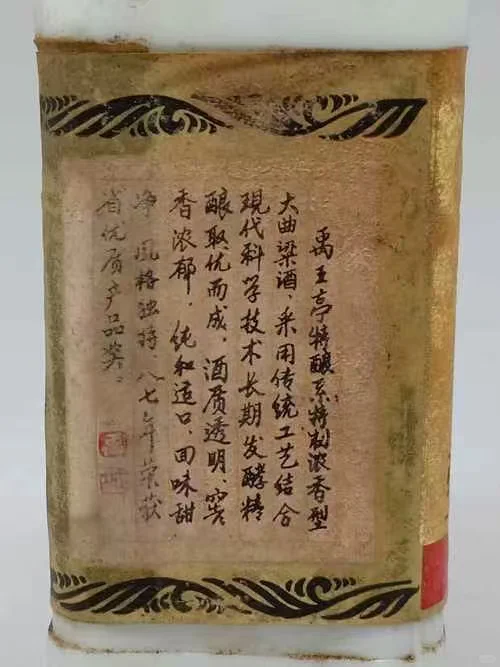 禹王亭特酿系特制浓香型
大曲粱酒，采用传统工艺结合
现代科学技术长期发酵精
酿取优而成，酒质透明、窖
香浓郁，纯和适口，回味甜
净，风格独特，八七年荣获
省优质产品奖。